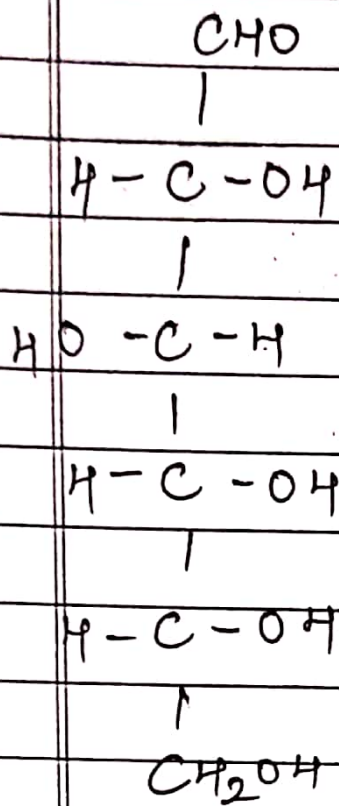 CHO
|
H - C - OH
|
HO - C - H
|
H - C - OH
|
H - C - OH
|
CH₂OH